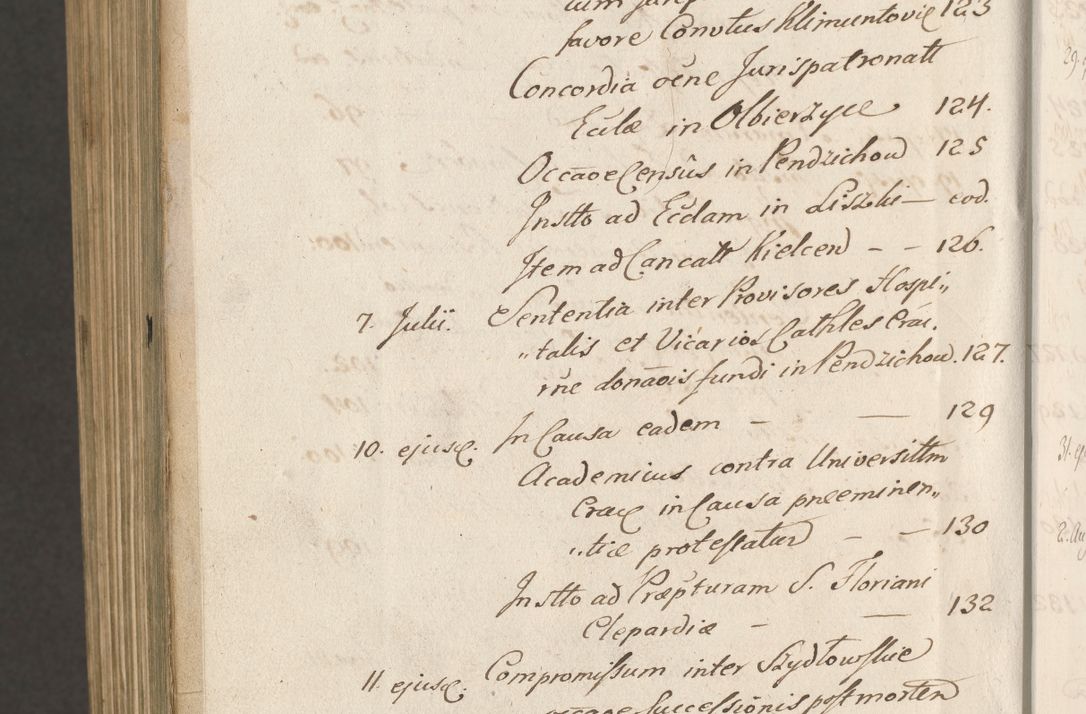 favore Convtus Klimuntovic 123
Concordia oēne Jurispatronatt
Eclæ in Olbierzyce 124.
Occāoe Censûs in Pendzichow 125
Instto ad Ecclam in Liszki — eod.
Item ad Cancatt Kielcen – – 126.
7. Julii. Sententia inter Provisores Hospi„
„talis et Vicarios Cathles Crac.
rne donāois fundi in Pendzichow. 127.
10. ejusq. In Causa eadem – — 129
Academicus contra Universittm
Crac in Causa præeminen„
„tiæ protestatur – — 130
Instto ad Præpturam S. Floriani
Clepardiæ – — 132
11. ejusq. Compromissum inter Szydłowskie
occaoe Successionis post mortem